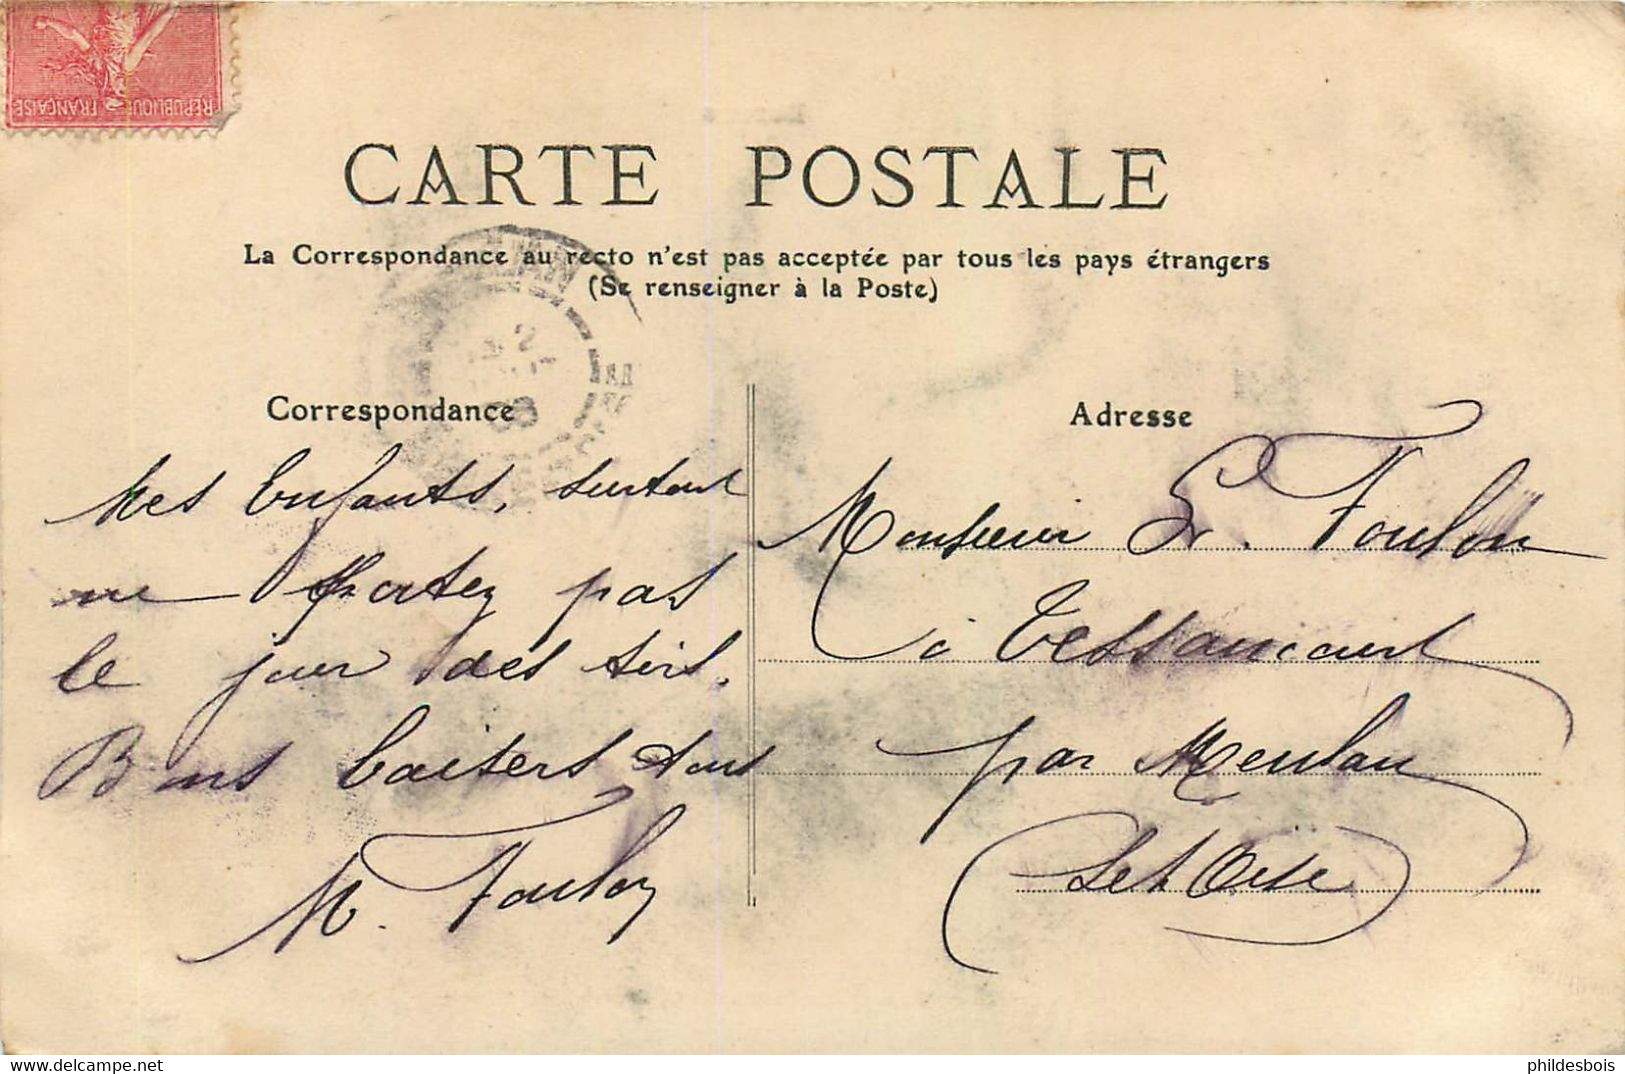 RÉPUBLIQUE FRANÇAISE
CARTE POSTALE
La Correspondance au recto n'est pas acceptée par tous les pays étrangers
(Se renseigner à la Poste)
Correspondance
Mes Enfants, surtout
ne pas
le jour des
Bons baisers à tous
M. Foulon
Adresse
Monsieur Foulon
à Tessancourt
par Meulan
Set Oise
phildesbois